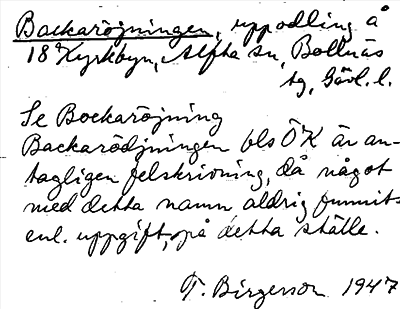 Backaröjningen, uppodling å
18 Kyrkbyn, Alfta sn, Bollnäs
tg, Gävl. l.
Se Bockaröjning
Backarödjningen bls ÖK är an-
tagligen felskrivning, då något
med detta namn aldrig funnits
enl. uppgift, på detta ställe.
T. Birgerson 1947